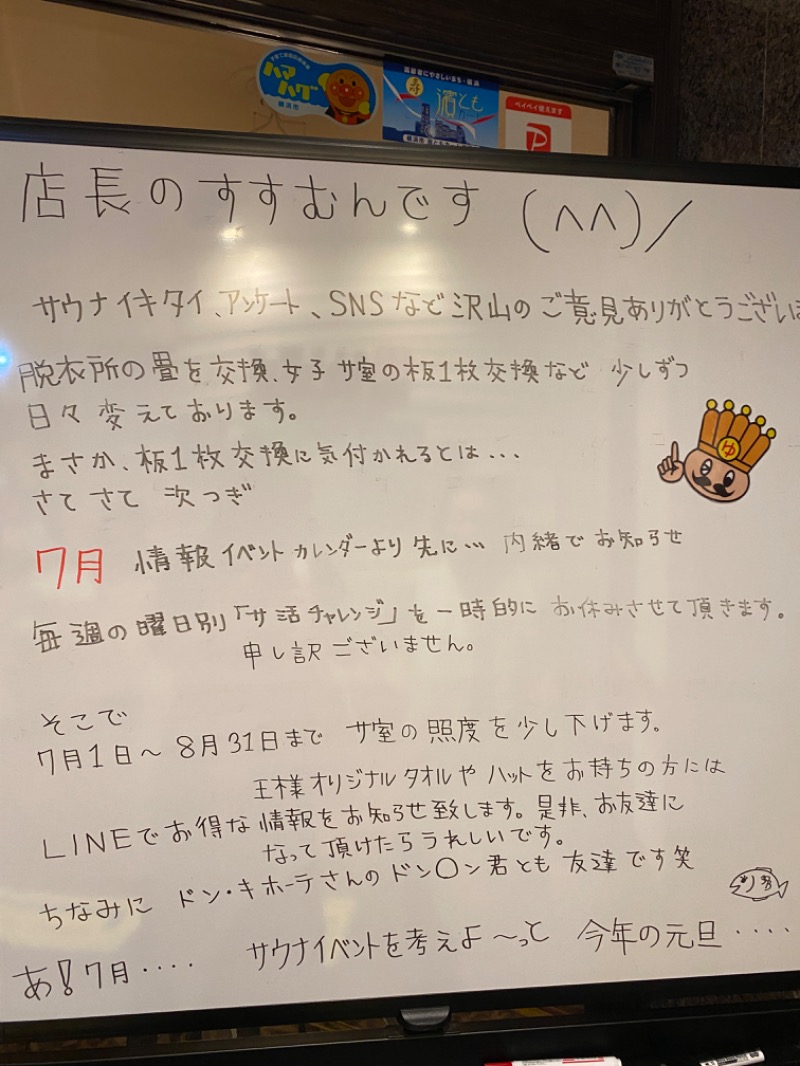 ハマハグ
横浜市
高齢者にやさしいまち・横浜
濱ともカード
ペイペイ使えます
店長のすすむんです (^^)/
サウナイキタイ、アンケート、SNSなど沢山のご意見ありがとうござい
脱衣所の畳を交換、女子サ室の板1枚交換など 少しずつ
日々変えております。
まさか、板1枚交換に気付かれるとは...
ゆ
さてさて 次つぎ
7月 情報イベントカレンダーより先に… 内緒でお知らせ
毎週の曜日別「サ活チャレンジ」を一時的に お休みさせて頂きます。
申し訳ございません。
そこで
7月1日〜8月31日まで サ室の照度を少し下げます。
王様オリジナルタオルや ハットをお持ちの方には
LINEでお得な情報をお知らせ致します。是非、お友達に
なって頂けたらうれしいです。
ちなみに ドン・キホーテさんのドン〇ン君とも 友達です笑
あ!7月.... サウナイベントを考えよ〜っと 今年の元旦.....